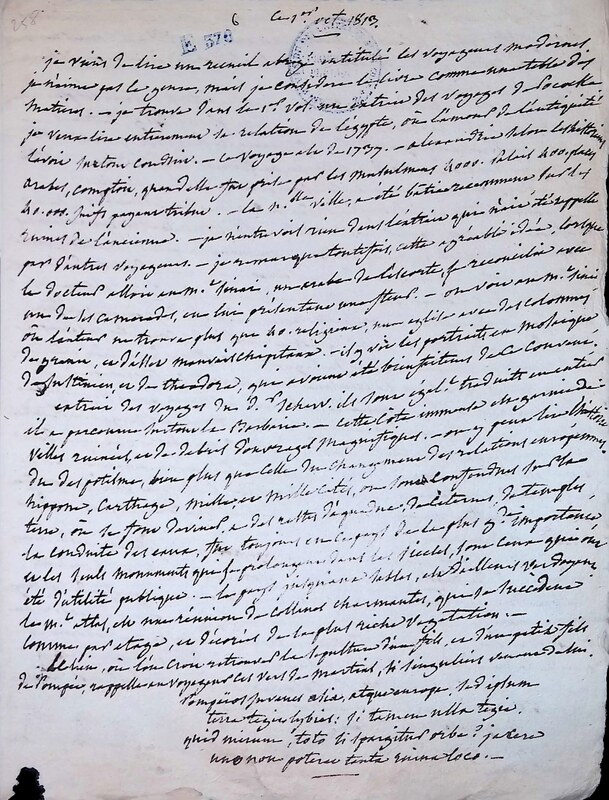 258
6 Ce 1er oct. 1813.
E 376
je viens de lire un recueil abrégé intitulé les voyageurs modernes
je n'aime pas le genre, mais je considère le livre comme une table des
matières. — je trouve dans le 1er vol. un extrait des voyages de Pococke
je veux lire entièrement sa relation de l'égypte, où l'amour de l'antiquité
l'avoit surtout conduit. — ce voyage est de 1737. — alexandrie selon les historiens
arabes, comptoit, quand elle fut prise par les Musulmans 4000. palais 400. places
40.000. juifs payant tribut. — la nlle ville, a été bâtie recemment sur les
ruines de l'ancienne. — je n'ai vu rien dans l'extrait qui n'ait été rappellé
par d'autres voyageurs. — je remarque toutefois, cette agréable idée, lorsque
le docteur alloit au mt Sinaï, un arabe de l'escorte, se reconcilia avec
un de ses camarades, en lui présentant une fleur. — on voit au mt Sinaï
où l'auteur ne trouva plus que 40. religieux, une eglise avec des colonnes
de granit, et d'assez mauvais chapitaux. — il y vit les portraits en mosaïque
de Justinien, et de theodora, qui avoient été bienfaiteurs de ce couvent.
extrait des voyages du d. Schaw. ils sont égalt traduits en entier
il a parcouru surtout la Barbarie. — cette Côte immense est garnie de
villes ruinées, et de débris d'ouvrages magnifiques. — on y peut lire l'histoire
du despotisme, bien plus que celle du changement des relations européennes
hippone, Carthage, mille, et mille cités, on sont confondues sous la
terre, où se sont devinés, a des restes d'aqueduc, de citernes, de temples
la conduite des eaux, fut toujours en ce pays de la plus gde importance
et les seuls monuments qui se prolongent dans les siècles, sont ceux qui ont
été d'utilité publique. — le pays jusqu'aux sables, est d'ailleurs verdoyant
le mt atlas, est une réunion de collines charmantes, qui se succèdent
comme par etage, et décorées de la plus riche végétation. —
où l'on croit retrouver la sépulture d'un fils, et d'un petit fils
de Pompée, rappelle au voyageur ces vers de martial, si singuliers
Pompeïos juvenes asia, atque europa, sed ipsum
terra tegit lybies. si tamen ulla tegit.
quid mirum, toto si spargitur orbe? jacere
uno non poterat tanta ruina loco. —